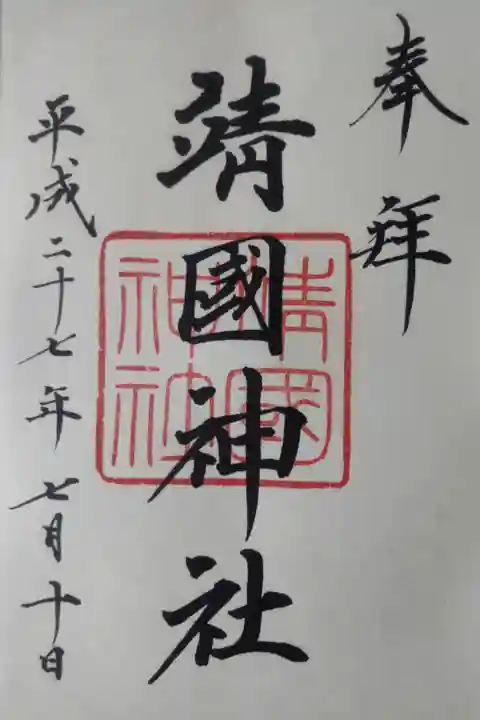 奉拜
靖國神社
靖國
神社
平成二十七年七月十日